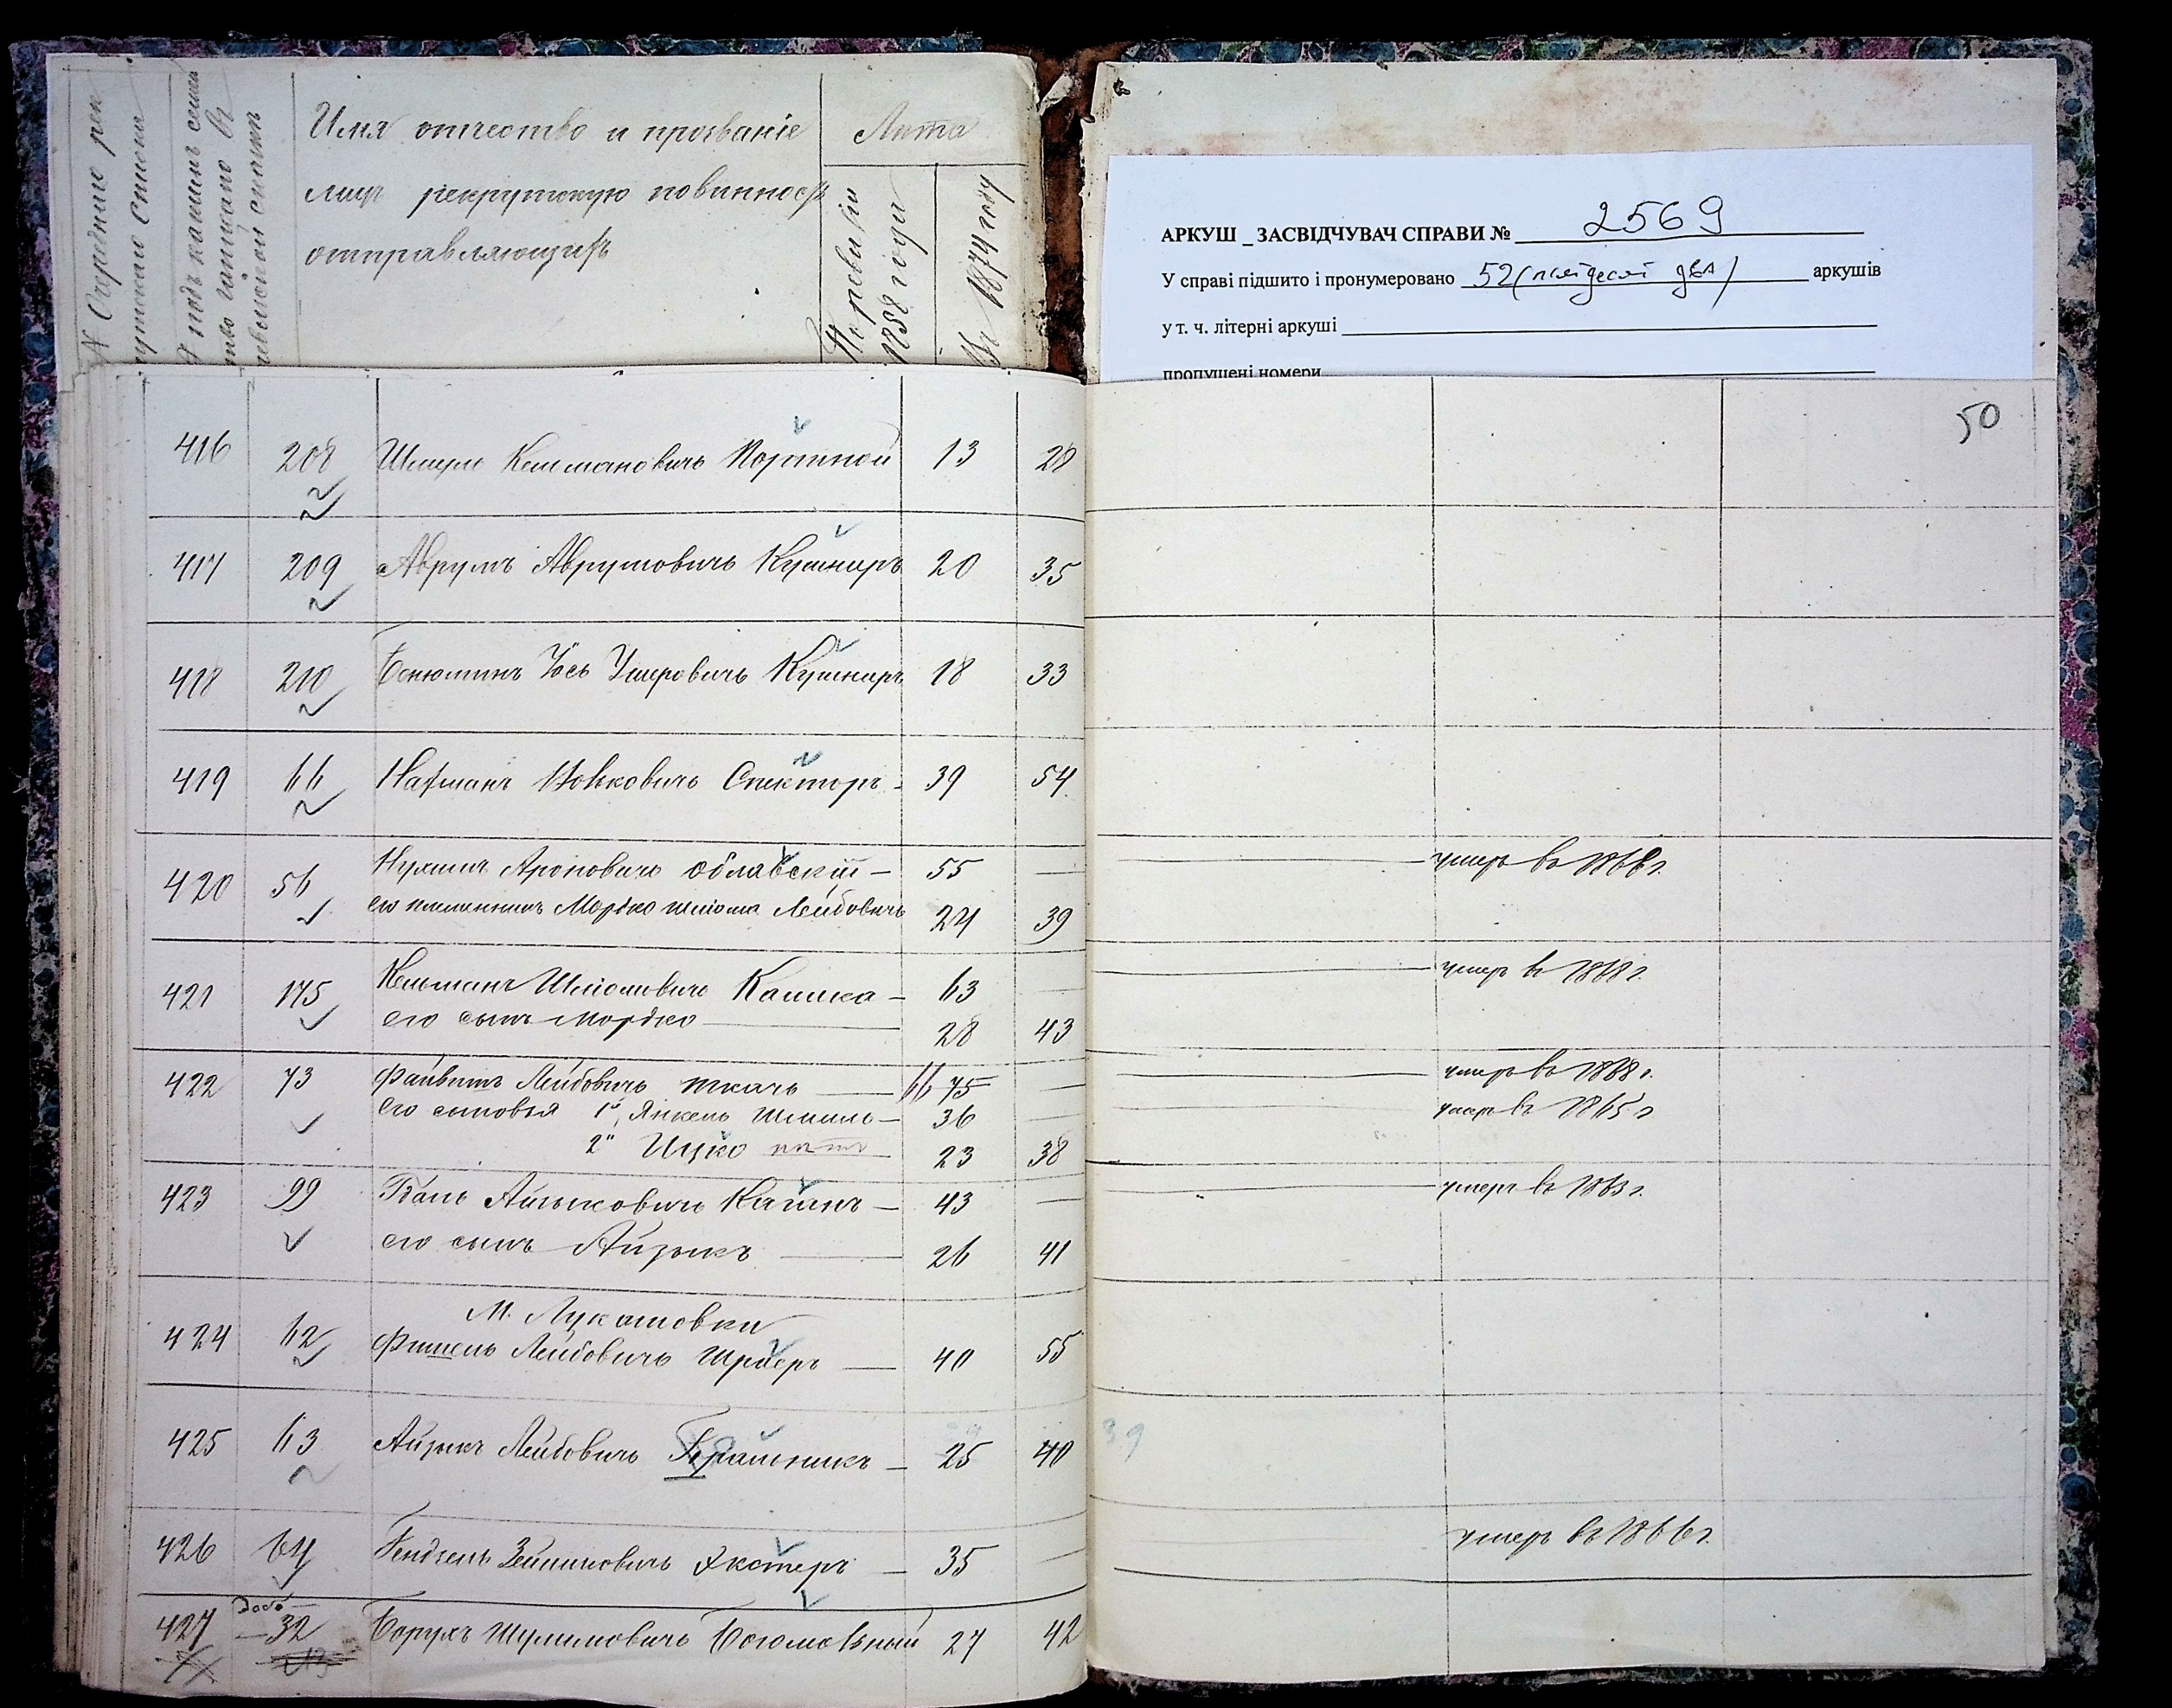 № Очередные рек
рутскаго Списка
№ подъ какимъ семей
ство записано въ
ревизской сказкѣ
Имя отчество и прозваніе
лицъ рекрутскую повинность
отправляющихъ
Лѣта
По ревизіи
1858 года
Въ 1874 году
АРКУШ _ ЗАСВІДЧУВАЧ СПРАВИ № 2569
У справі підшито і пронумеровано 52 (пятдесят два) аркушів
у т. ч. літерні аркуші
пропущені номери
50
416 208 Шмуль Кельмановичъ Портной 13 28
417 209 Аврумъ Аврумовичъ Кушниръ 20 35
418 210 Бенюминъ Іось Умеровичъ Кушниръ 18 33
419 66 Нахманъ Волковичъ Спекторъ 39 54
420 56 Нухимъ Ароновичъ Облавскій — 55 — умеръ въ 1868 г.
его племенникъ Мордко Шліома Лейбовичъ 24 39
421 175 Кельманъ Шліомовичъ Кашка — 63 — умеръ въ 1868 г.
его сынъ Мордко 28 43
422 73 Файвишъ Лейбовичъ Ткачъ — 66 75 — умеръ въ 1868 г.
Его сыновья 1й Янкель Шмиль — 36 — умеръ въ 1865 г
2й Ицко 23 38
423 99 Бань Айзыковичъ Каганъ — 43 — умеръ въ 1863 г.
его сынъ Айзыкъ 26 41
М. Лукашовки
424 62 Фишель Лейбовичъ Шраеръ — 40 55
425 63 Айзыкъ Лейбовичъ Брашникъ — 25 40 39
426 64 Гендзель Зейликовичъ Экстеръ — 35 — умеръ въ 1866 г.
427 Доб. 32 Борухъ Шулимовичъ Богомольный 27 42